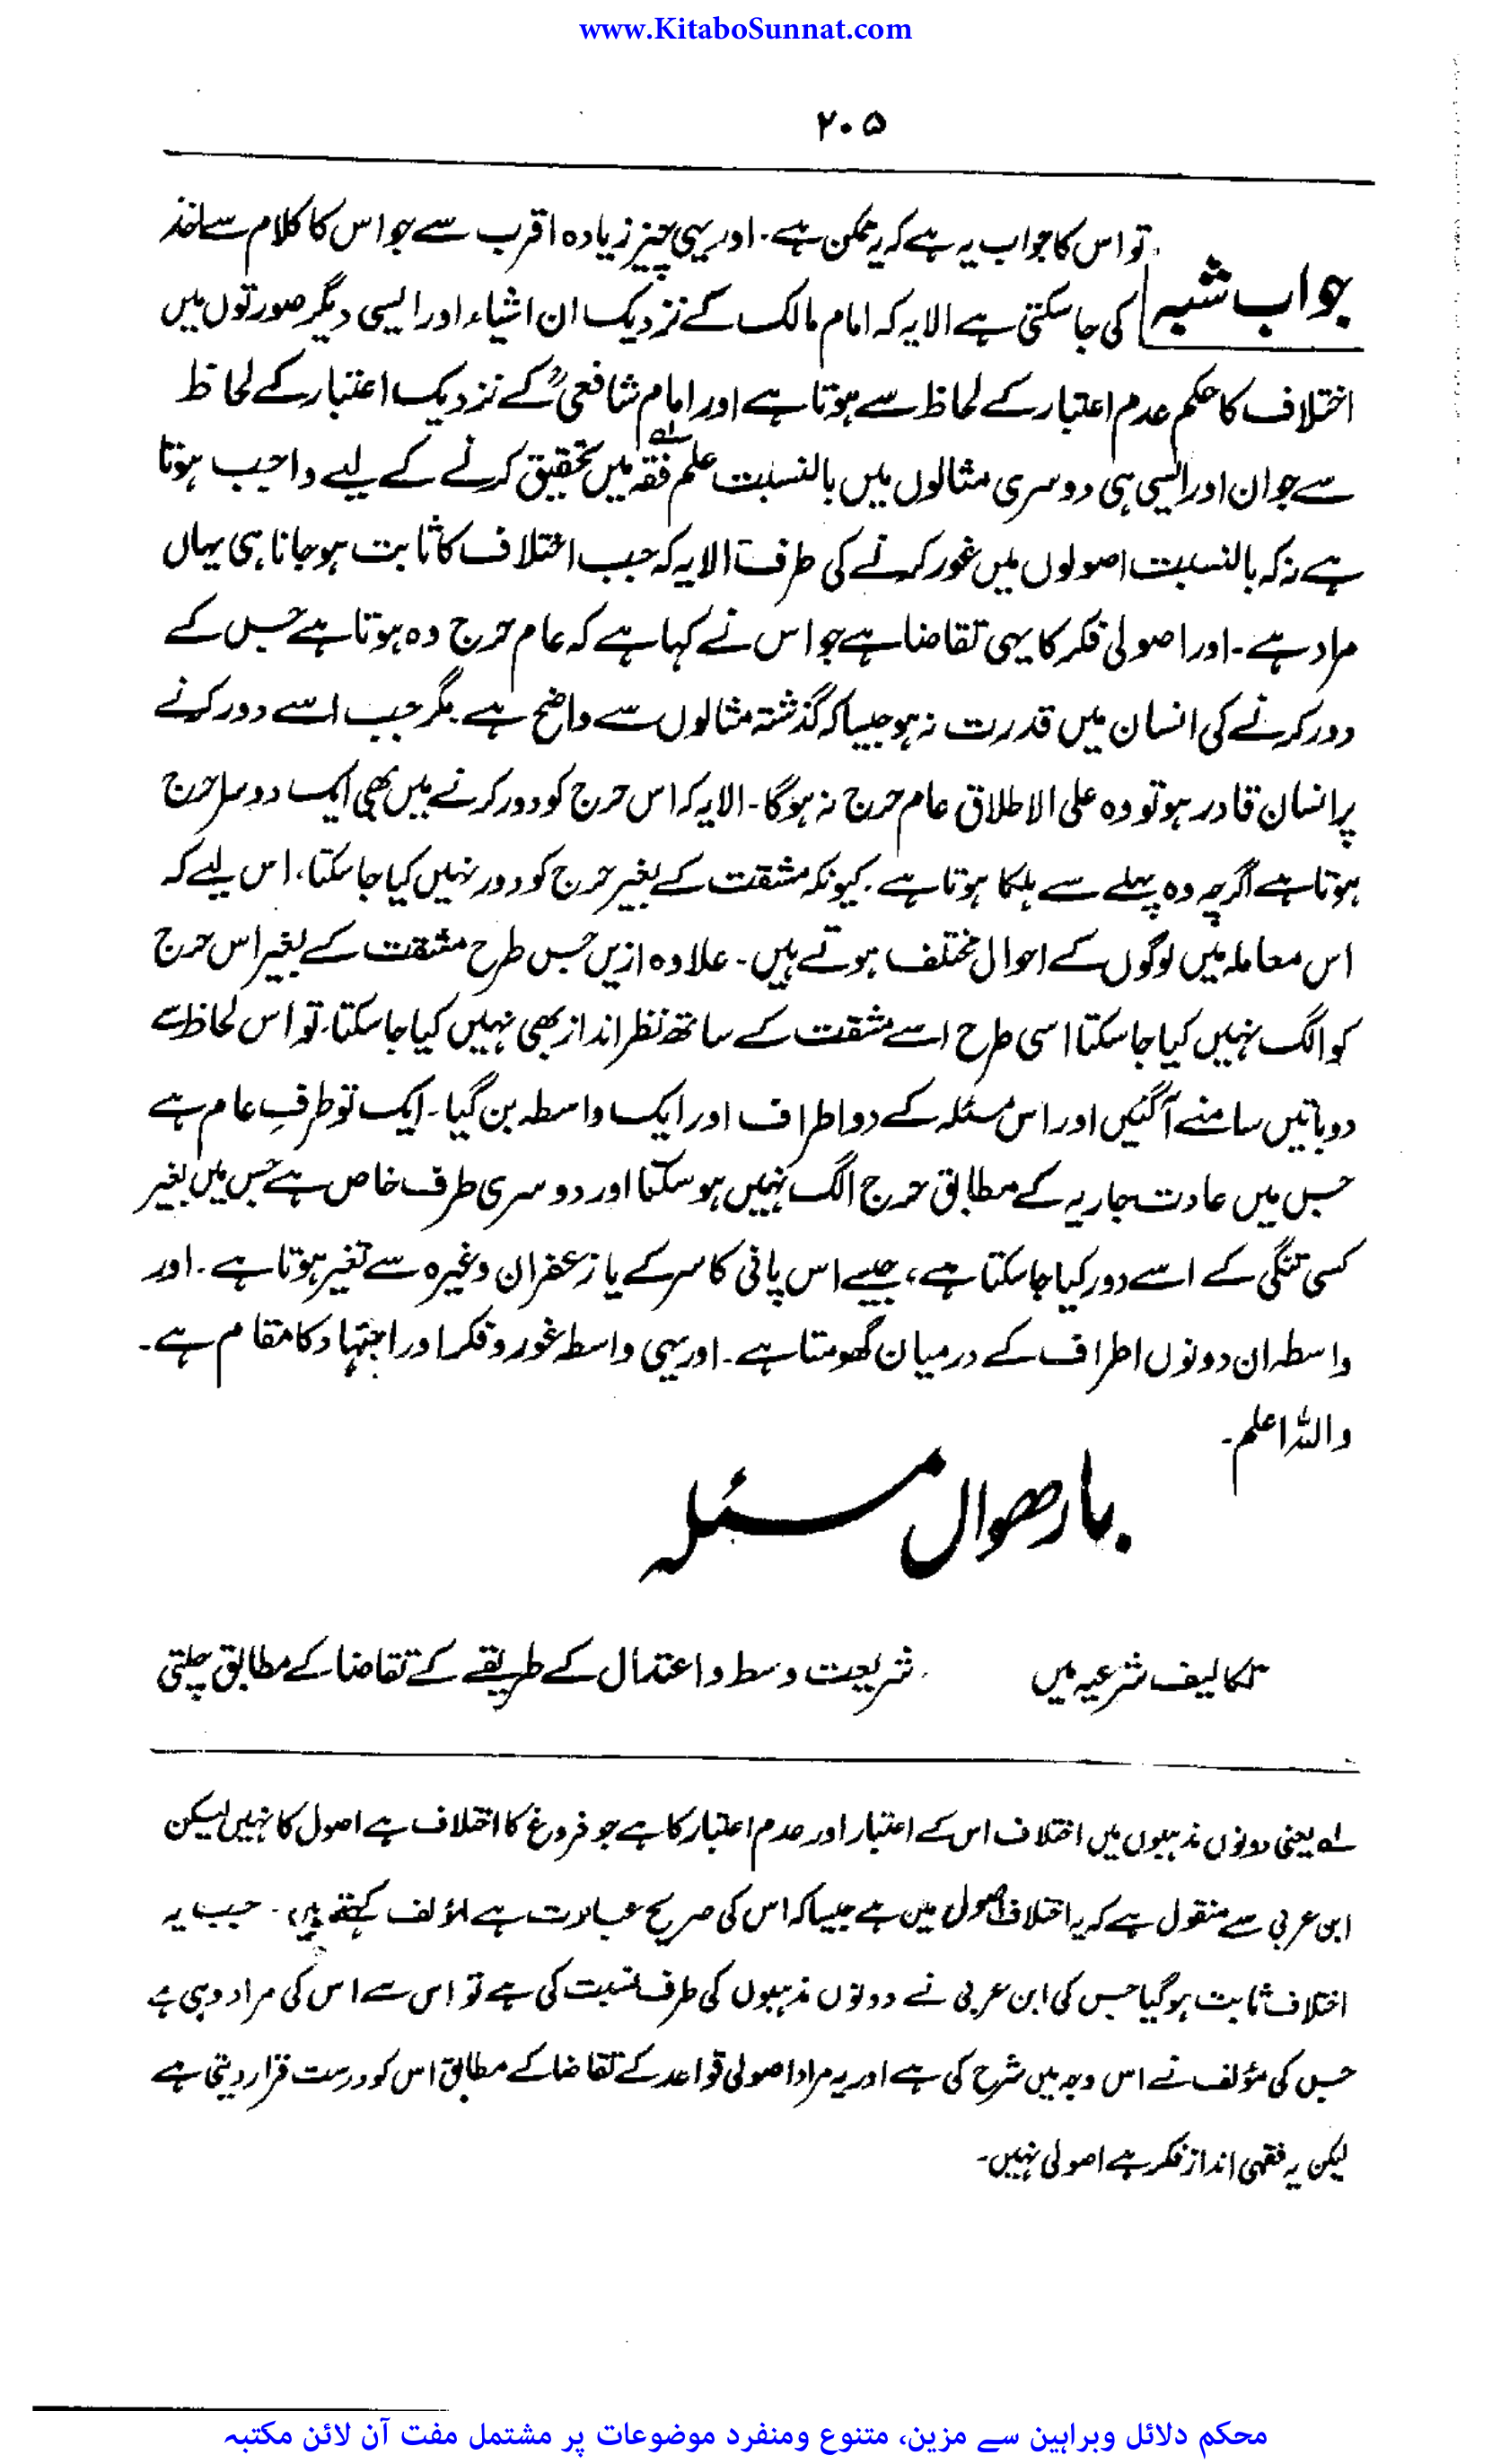 www.KitaboSunnat.com
۲۰۵
جواب شبہ
تو اس کا جواب یہ ہے کہ یہ ممکن ہے۔ اور یہی چیز زیادہ اقرب سے جو اس کا کلام سے اخذ
کی جا سکتی ہے الا یہ کہ امام مالک کے نزدیک ان اشیاء اور ایسی دیگر صورتوں میں
اختلاف کا حکم عدم اعتبار کے لحاظ سے ہوتا ہے اور امام شافعیؒ کے نزدیک اعتبار کے لحاظ
سے جو ان اور ایسی ہی دوسری مثالوں میں بالنسبت علم فقہ میں تحقیق کرنے کے لیے واجب ہوتا
ہے نہ کہ بالنسبت اصولوں میں غور کرنے کی طرف الا یہ کہ جب اختلاف کا ثابت ہو جانا ہی یہاں
مراد ہے۔ اور اصولی فکر کا یہی تقاضا ہے جو اس نے کہا ہے کہ عام حرج وہ ہوتا ہے جس کے
دور کرنے کی انسان میں قدرت نہ ہو جیسا کہ گذشتہ مثالوں سے واضح ہے مگر جب اسے دور کرنے
پر انسان قادر ہو تو وہ علی الاطلاق عام حرج نہ ہوگا۔ الا یہ کہ اس حرج کو دور کرنے میں بھی ایک دوسرا حرج
ہوتا ہے اگرچہ وہ پہلے سے ہلکا ہوتا ہے۔ کیونکہ مشقت کے بغیر حرج کو دور نہیں کیا جا سکتا، اس لیے کہ
اس معاملہ میں لوگوں کے احوال مختلف ہوتے ہیں۔ علاوہ ازیں جس طرح مشقت کے بغیر اس حرج
کو الگ نہیں کیا جا سکتا اسی طرح اسے مشقت کے ساتھ نظر انداز بھی نہیں کیا جا سکتا۔ تو اس لحاظ سے
دو باتیں سامنے آگئیں اور اس مسئلہ کے دو اطراف اور ایک واسطہ بن گیا۔ ایک تو طرفِ عام ہے
جس میں عادت جاریہ کے مطابق حرج الگ نہیں ہو سکتا اور دوسری طرف خاص ہے جس میں بغیر
کسی تنگی کے اسے دور کیا جا سکتا ہے، جیسے اس پانی کا سرکے یا زعفران وغیرہ سے تغیر ہوتا ہے۔ اور
واسطہ ان دونوں اطراف کے درمیان گھومتا ہے۔ اور یہی واسطہ غور و فکر اور اجتہاد کا مقام ہے۔
واللہ اعلم۔
بارھواں مسئلہ
تکالیف شرعیہ میں شریعت وسط و اعتدال کے طریقے کے تقاضا کے مطابق چلتی
لے یعنی دونوں مذہبوں میں اختلاف اس کے اعتبار اور عدم اعتبار کا ہے جو فروغ کا اختلاف ہے اصول کا نہیں لیکن
ابن عربی سے منقول ہے کہ یہ اختلاف اصول میں ہے جیسا کہ اس کی صریح عبارت ہے مؤلف کہتے ہیں۔ جب یہ
اختلاف ثابت ہو گیا جس کی ابن عربی نے دونوں مذہبوں کی طرف نسبت کی ہے تو اس سے اس کی مراد وہی ہے
جس کی مؤلف نے اس وجہ میں شرح کی ہے اور یہ مراد اصولی قواعد کے تقاضا کے مطابق اس کو درست قرار دیتی ہے
لیکن یہ فقہی انداز فکر ہے اصولی نہیں۔
محکم دلائل وبراہین سے مزین، متنوع ومنفرد موضوعات پر مشتمل مفت آن لائن مکتبہ